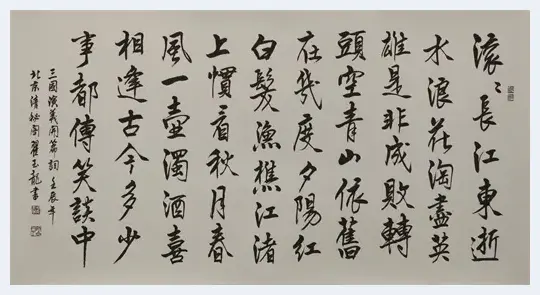 滾〻長江東逝
水浪花淘盡英
雄是非成敗轉
頭空青山依舊
在幾度夕陽紅
白髮漁樵江渚
上慣看秋月春
風一壺濁酒喜
相逢古今多少
事都傳笑談中
三國演義開篇詞壬辰年
北京清秘閣翟玉龍書